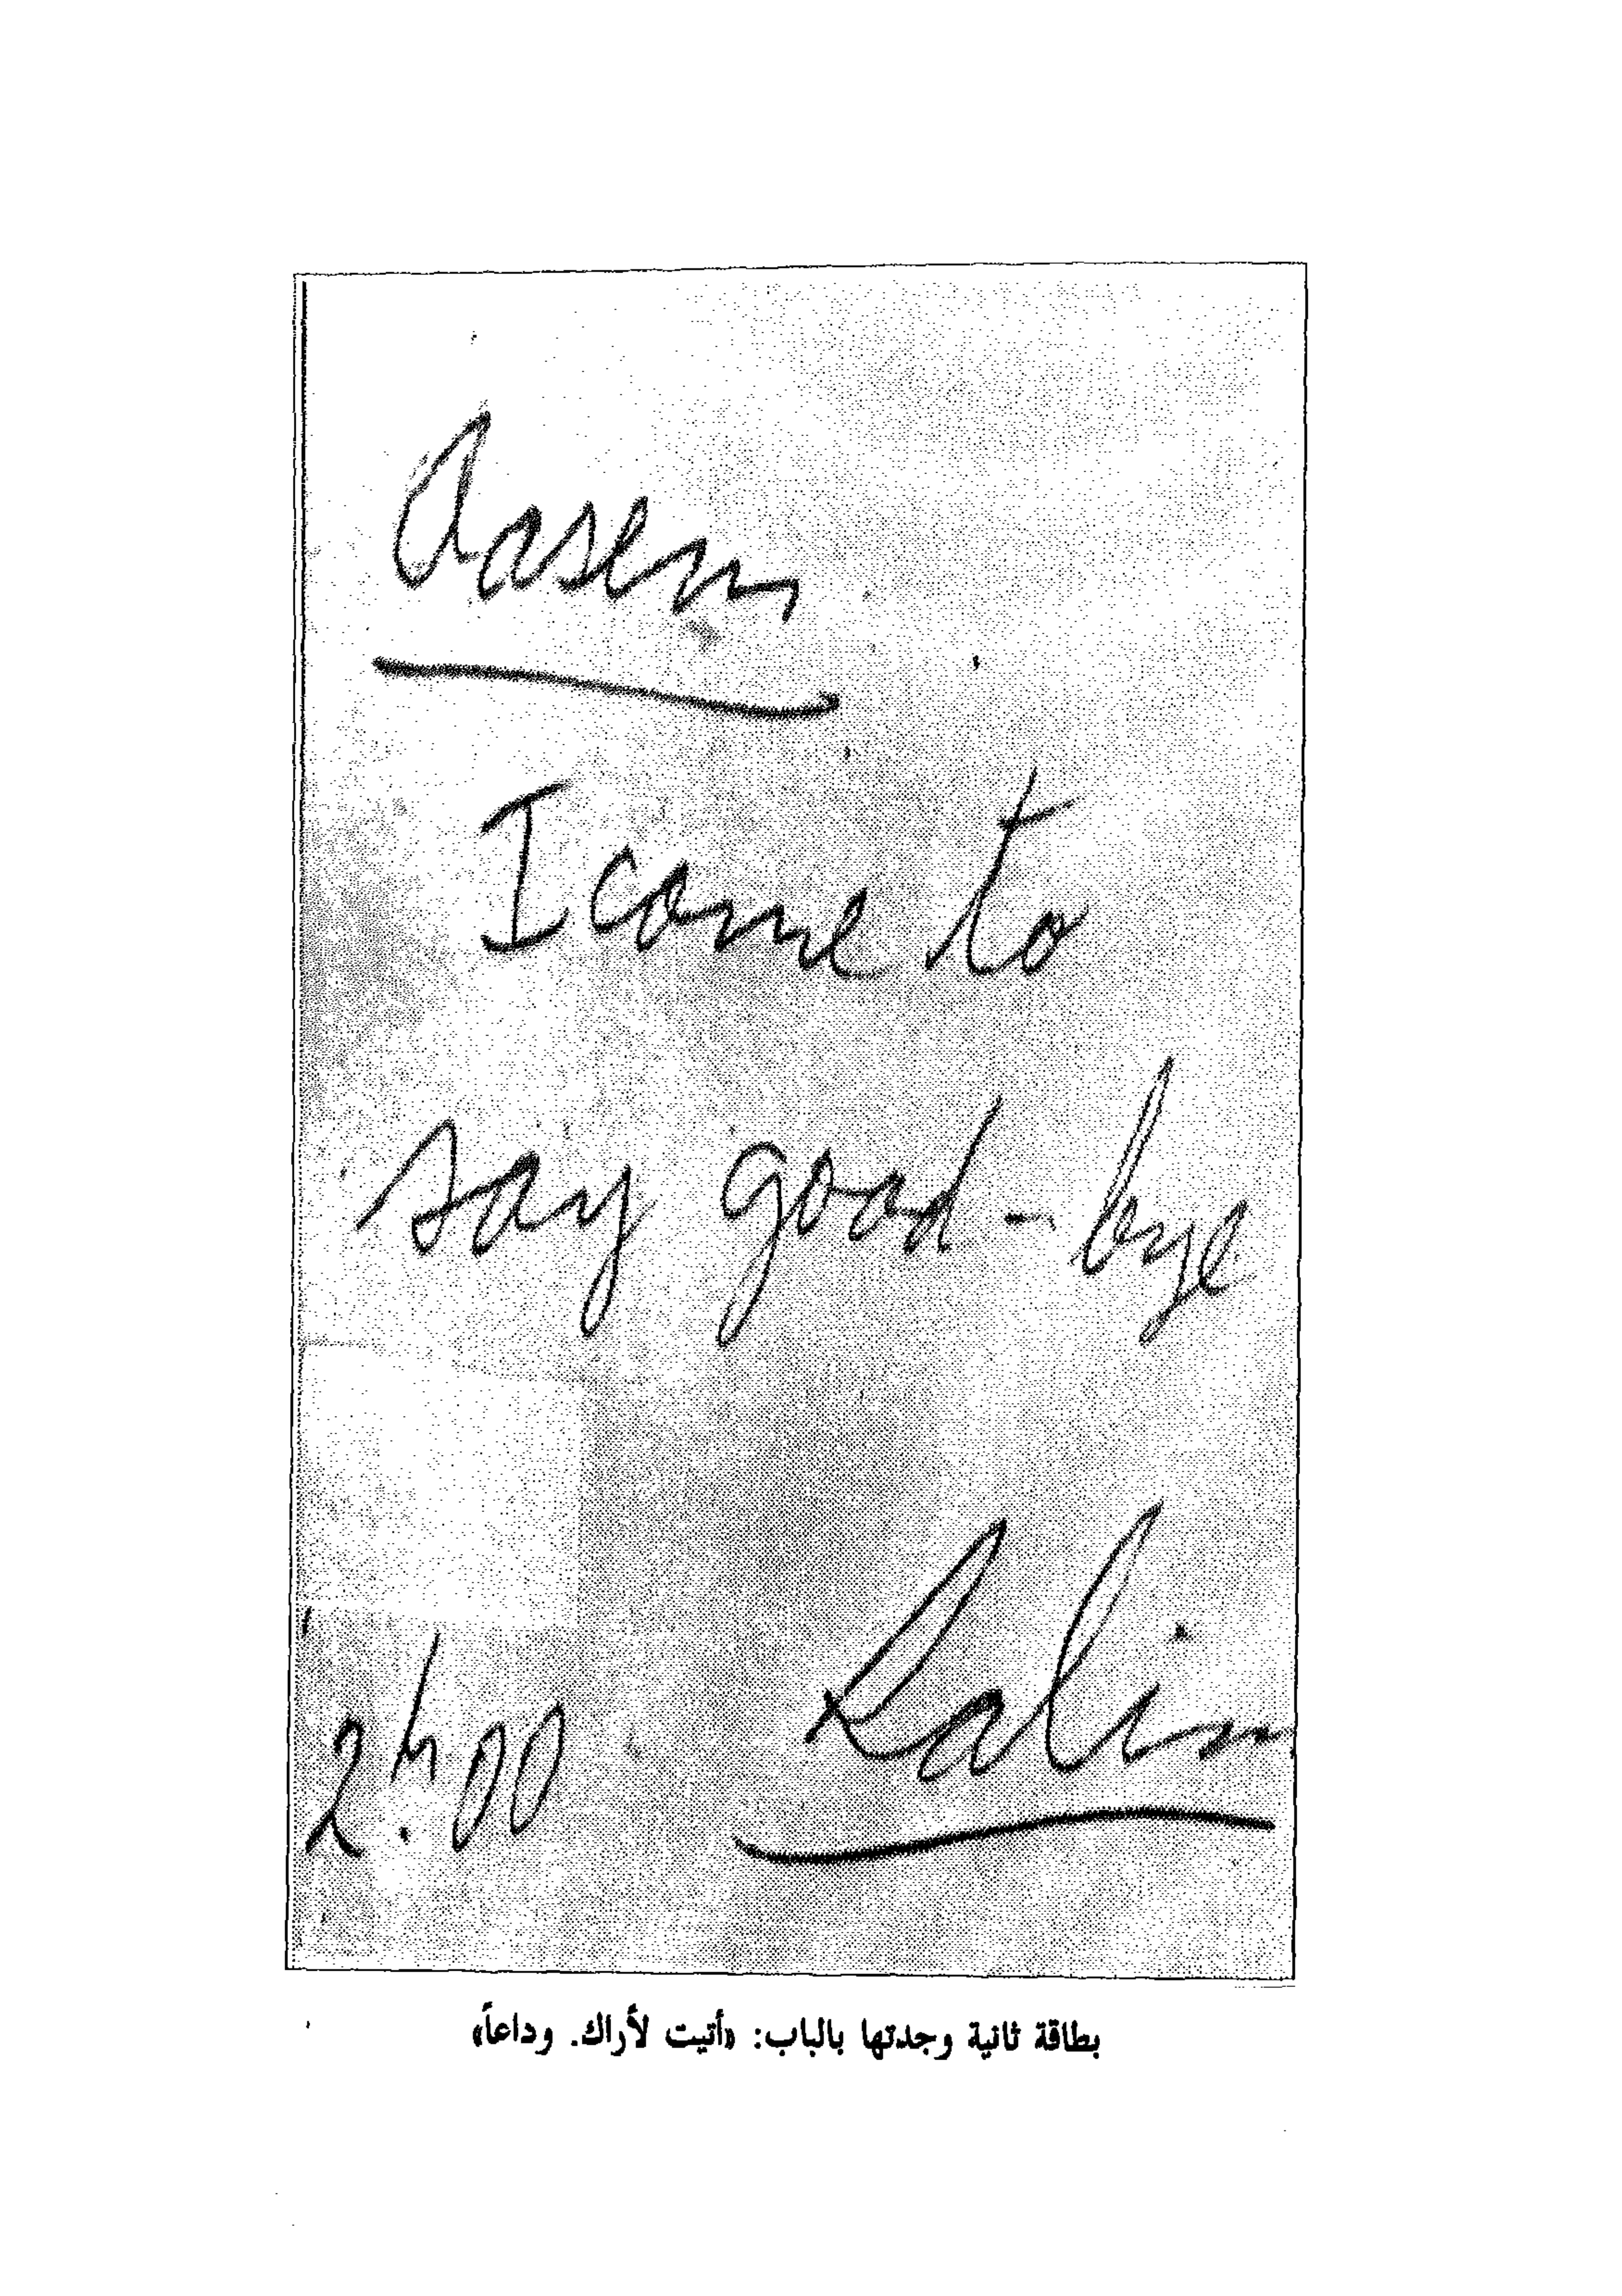 Aasem
I come to
say good-bye
2h.00 Salim
بطاقة ثانية وجدتها بالباب: «أتيت لأراك. وداعاً»